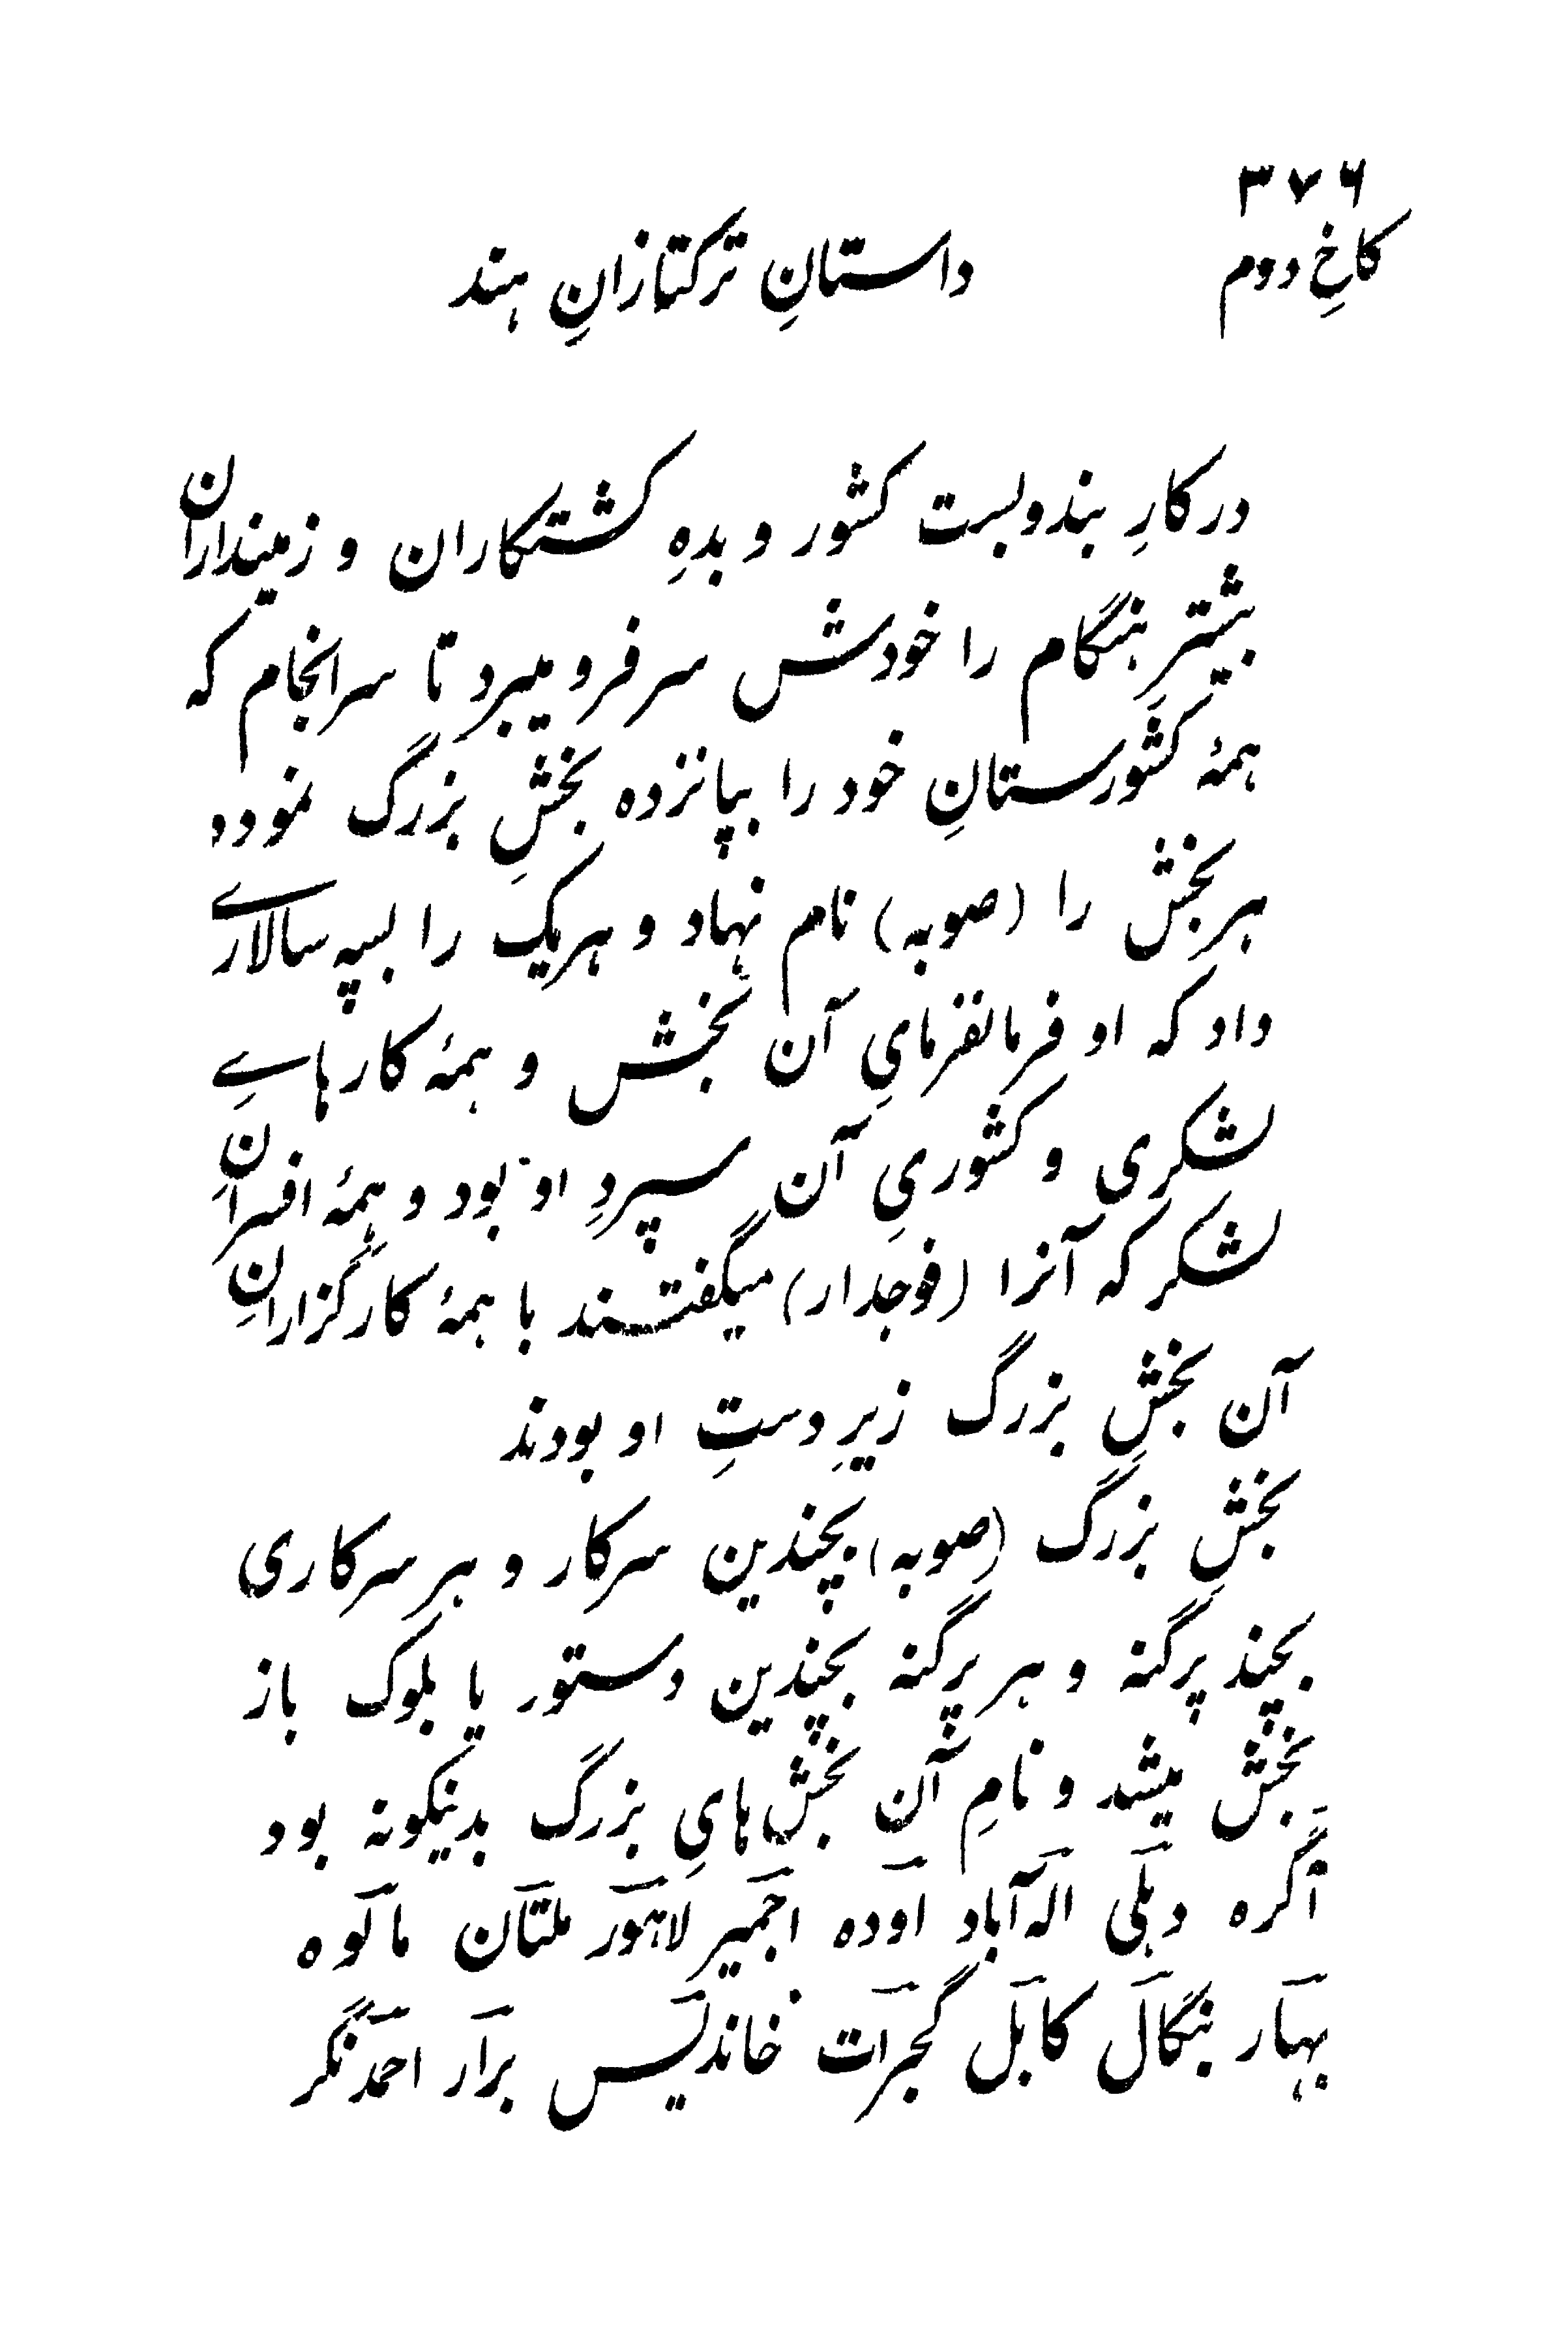 ۳۷۶
کاخِ دوم
داستانِ ترکتازانِ هند
در کارِ بندوبست کشور و بدهِ کشتکاران و زمینداران
بیشترِ هنگام را خودش سر فرو میبرد تا سرانجام که
همهٔ کشورستانِ خود را بپانزده بخشِ بزرگ نموده
هر بخش را (صوبه) نام نهاد و هر یک را بسپه سالارے
داد که او فرمانفرمایِ آن بخش و همهٔ کارهاےِ
لشکری و کشوریِ آن سپردِ او بود و همهٔ افسرانِ
لشکر که آنرا (فوجدار) میگفتند با همهٔ کارگزارانِ
آن بخشِ بزرگ زیرِ دستِ او بودند
بخشِ بزرگ (صوبه) بچندین سرکار و هر سرکاری
بچند پرگنه و هر پرگنه بچندین دستور یا بلوک باز
بخش میشد و نامِ آن بخش‌هایِ بزرگ بدینگونه بود
آگره دهلی اله‌آباد اوده اجمیر لاهور ملتان مالوه
بهار بنگال کابل گجرات خاندیس برار احمدنگر